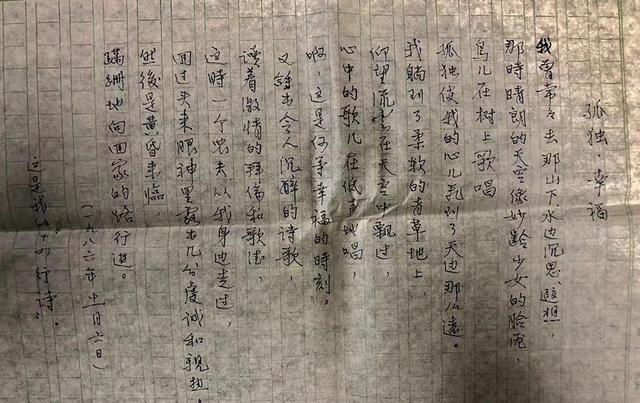 孤独·幸福
我曾常々去那山下、水边沉思、遐想，
那時晴朗的天空像妙龄少女的脸庞，
鸟儿在树上歌唱
孤独使我的心儿飞到了天边那么遠。
我躺到了柔软的青草地上，
仰望流云在天空中飘过，
心中的歌儿在低声地唱，
啊，这是何等幸福的時刻。
又翻出令人沉醉的诗歌
讀着激情的拜倫和歌德，
这時一个农夫从我身边走过，
回过头来眼神里露出几分虔诚和親热。
然後是黄昏来臨，
蹒跚地向回家的路行進。
（一九八六年 十一月六日）
这是我的“十四行诗”。